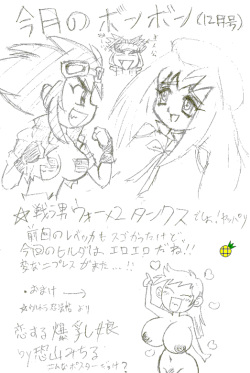 今月のボンボン(12月号)
☆戦湯男ウォーメタンクス でしょ、やっぱり
前回のレイカもスゴかったけど
今回のヒルダはエロエロだね!!
変なニプレスがまた…!!
・おまけ→
より
恋する爆乳娘
by 恐山みちる
こんなポスターでいけ?